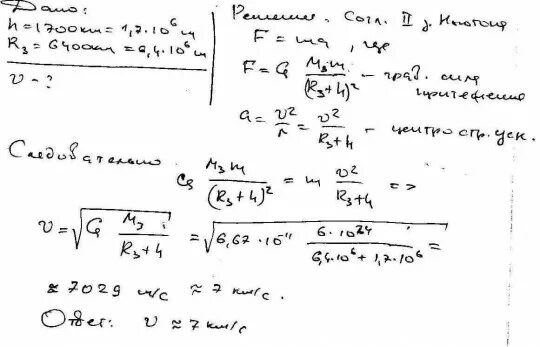 Дано:
h = 1700км = 1,7·10⁶ м
R₃ = 6400км = 6,4·10⁶ м
v - ?
Решение. Согл. II з. Ньютона
F = ma, где
F = G M₃m / (R₃+h)² - грав. сила
притяжения
a = v²/r = v²/(R₃+h) - центростр. уск.
Следовательно
G M₃m / (R₃+h)² = m v²/(R₃+h) =>
v = √(G M₃/(R₃+h)) = √(6,67·10⁻¹¹ 6·10²⁴/(6,4·10⁶+1,7·10⁶)) =
≈ 7029 м/с ≈ 7 км/с.
Ответ: v ≈ 7 км/с